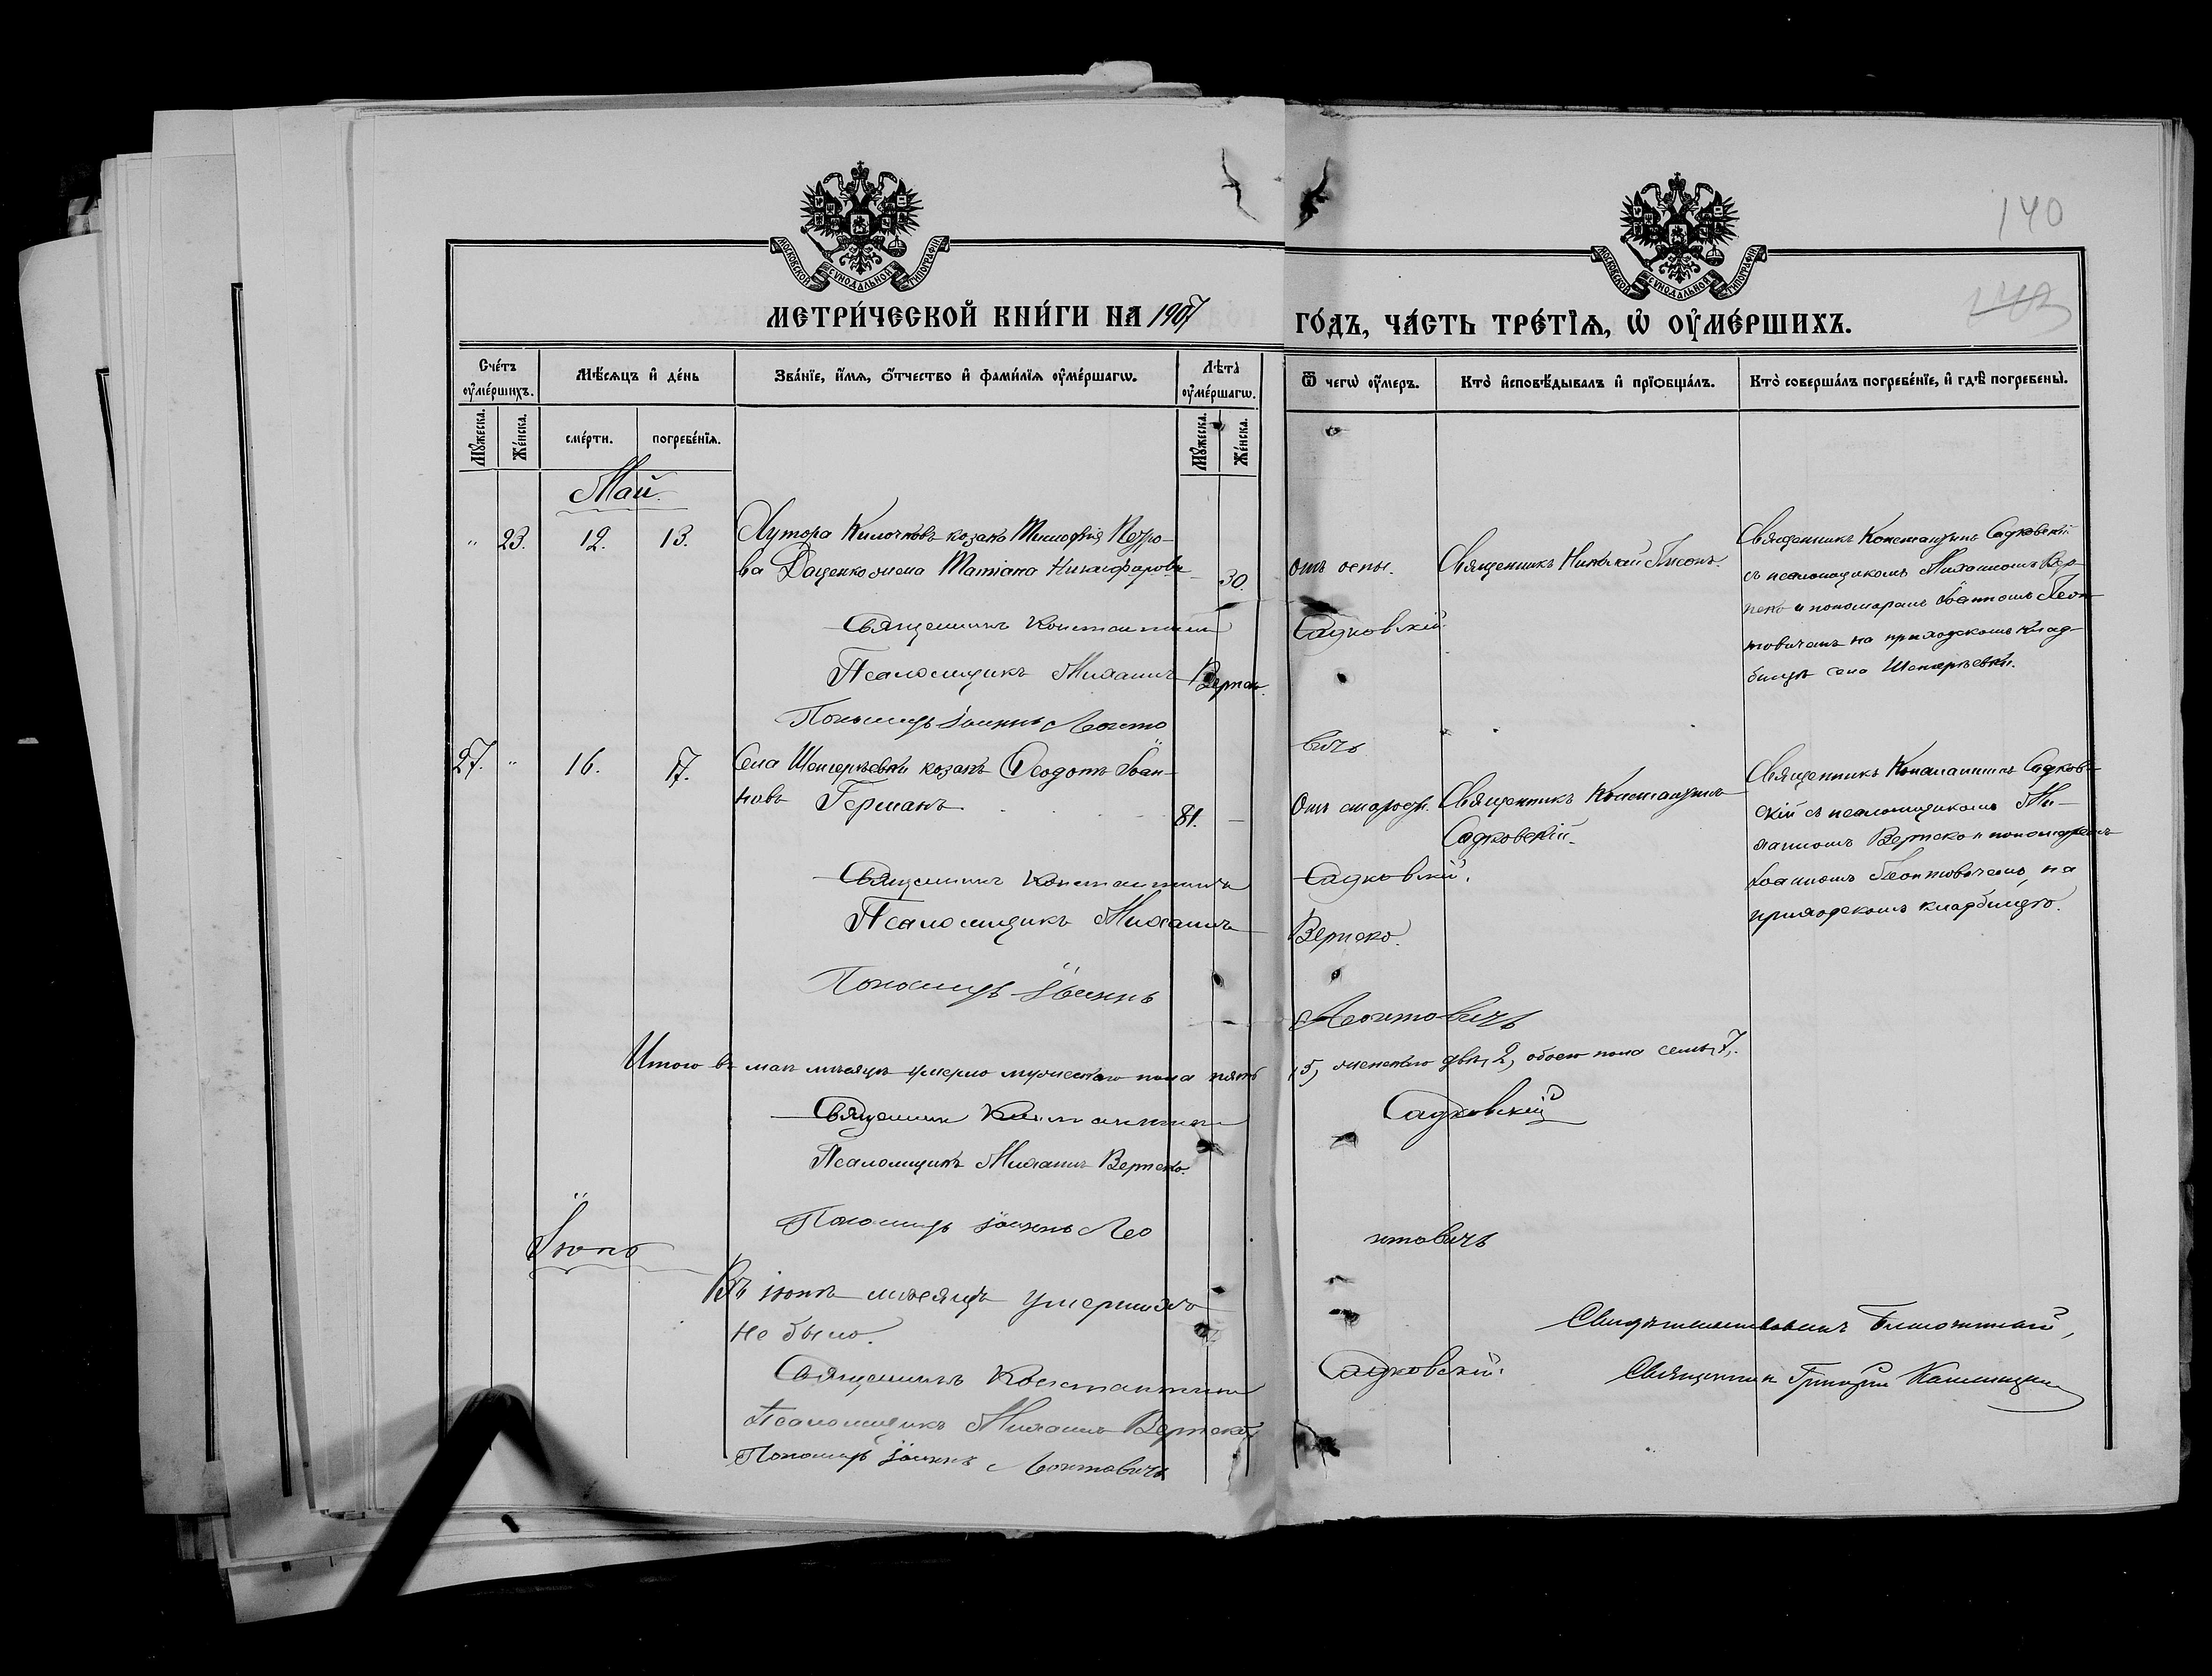 МОСКОВСКОЙ СѴНОДАЛЬНОЙ ТИПОГРАФІИ
МОСКОВСКОЙ СѴНОДАЛЬНОЙ ТИПОГРАФІИ
140
МЕТРИ́ЧЕСКОЙ КНИ́ГИ НА 1907
ГО́ДЪ, ЧА́СТЬ ТРЕ́ТІѦ, Ѡ҆ ОУ҆МЕ́РШИХЪ.
Сче́тъ оу҆ме́ршихъ.
Мѣ́сѧцъ и҆ де́нь
Зва́нїе, и҆́мѧ, ѻ҆́тчество и҆ фами́лїѧ оу҆ме́ршагѡ.
Лѣ́та оу҆ме́ршагѡ.
Ѿ чегѡ̀ оу҆́меръ.
Кто̀ и҆сповѣ́дывалъ и҆ прїѻбща́лъ.
Кто̀ соверша́лъ погребе́нїе, и҆ гдѣ̀ погребены̀.
Мꙋ́жеска.
Же́нска.
сме́рти.
погребе́нїѧ.
Мꙋ́жеска.
Же́нска.
Май.
" 23. 12. 13.
Хутора Килочковъ козака Тимофея Петро-
ва Даценко жена Татіана Никифорова
30.
отъ оспы.
Священникъ Николай
Священникъ Константинъ Садковскій
съ псаломщикомъ Михаиломъ Вер-
неко и пономаремъ Іоанномъ Леон
товичемъ на приходскомъ клад-
бищѣ села
Священникъ Константинъ Садковскій
Псаломщикъ Михаилъ Вернеко.
Пономарь Іоаннъ Леонтовичъ
27. " 16. 17.
Села козакъ Ѳеодотъ Іоан-
новъ Германъ
81. —
Отъ старости.
Священникъ Константинъ
Садковскій.
Священникъ Константинъ Садков-
скій съ псаломщикомъ Ми-
хаиломъ Вернеко и пономаремъ
Іоанномъ Леонтовичемъ, на
приходскомъ кладбищѣ.
Священникъ Константинъ Садковскій.
Псаломщикъ Михаилъ Вернеко.
Пономарь Іоаннъ Леонтовичъ
Итого въ маѣ мѣсяцѣ умерло мужескаго пола пять, 5, женскаго двѣ, 2, обоего пола семь, 7.
Священникъ Константинъ Садковскій
Псаломщикъ Михаилъ Вернеко.
Пономарь Іоаннъ Леонтовичъ
Іюнь
Въ іюнѣ мѣсяцѣ умершихъ
не было.
Священникъ Константинъ Садковскій.
Псаломщикъ Михаилъ Вернеко
Пономарь Іоаннъ Леонтовичъ
Свидѣтельствовалъ Благочинный,
Священникъ Григорій